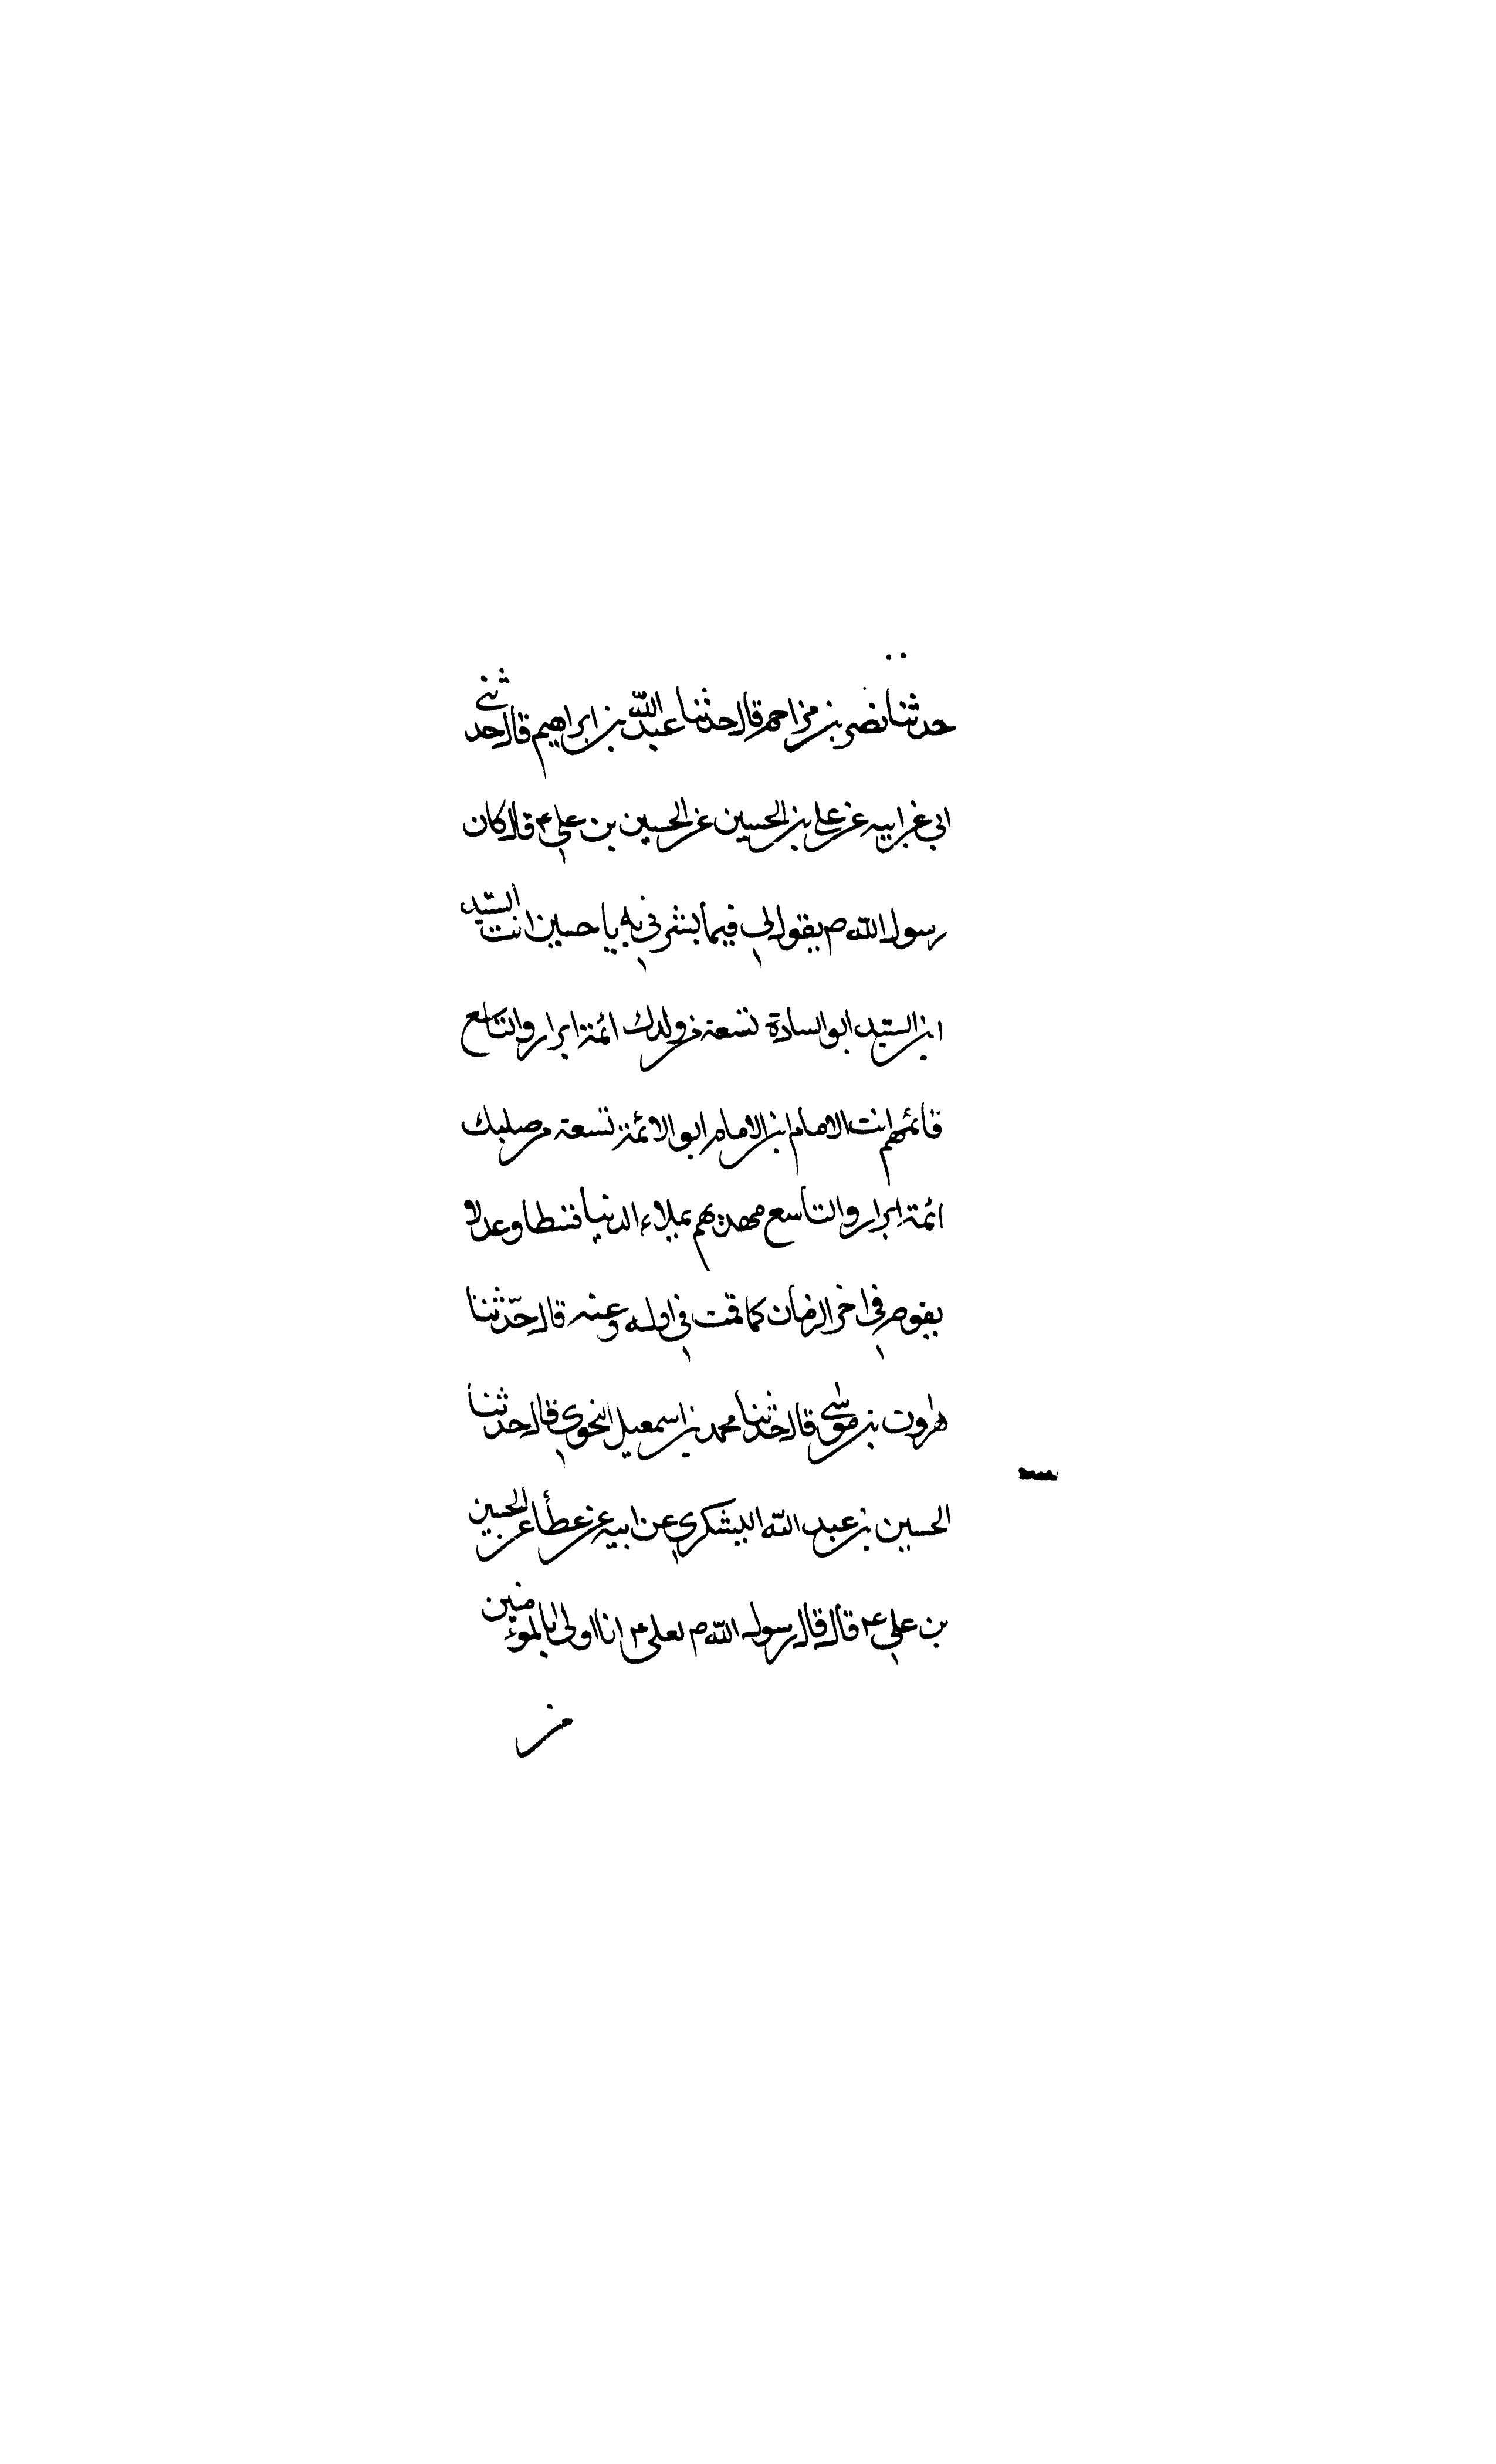 حدثنا نصر بن مزاحم قال حدثنا عبد الله بن ابراهيم قال حدثني
ابي عن ابيه عن علي بن الحسين عن الحسين بن علي ع قال كان
رسول الله ص يقول لي فيما بشرني به يا حسين انت السيد
ابن السيد ابو السادة تسعة من ولدك ائمة ابرار والتاسع
قائمهم انت الامام ابن الامام ابو الائمة تسعة من صلبك
ائمة ابرار والتاسع مهديهم يملاء الدنيا قسطا وعدلا
يقوم في اخر الزمان كما قمت في اوله وعنه قال حدّثنا
هرون بن موسى قال حدثنا محمد بن اسمعيل النحوي قال حدثنا
الحسين بن عبد الله اليشكري عن ابيه عن عطأ عن الحسين
بن علي ع قال قال رسول الله ص لعلي ع انا اولى بالمؤمنين
من